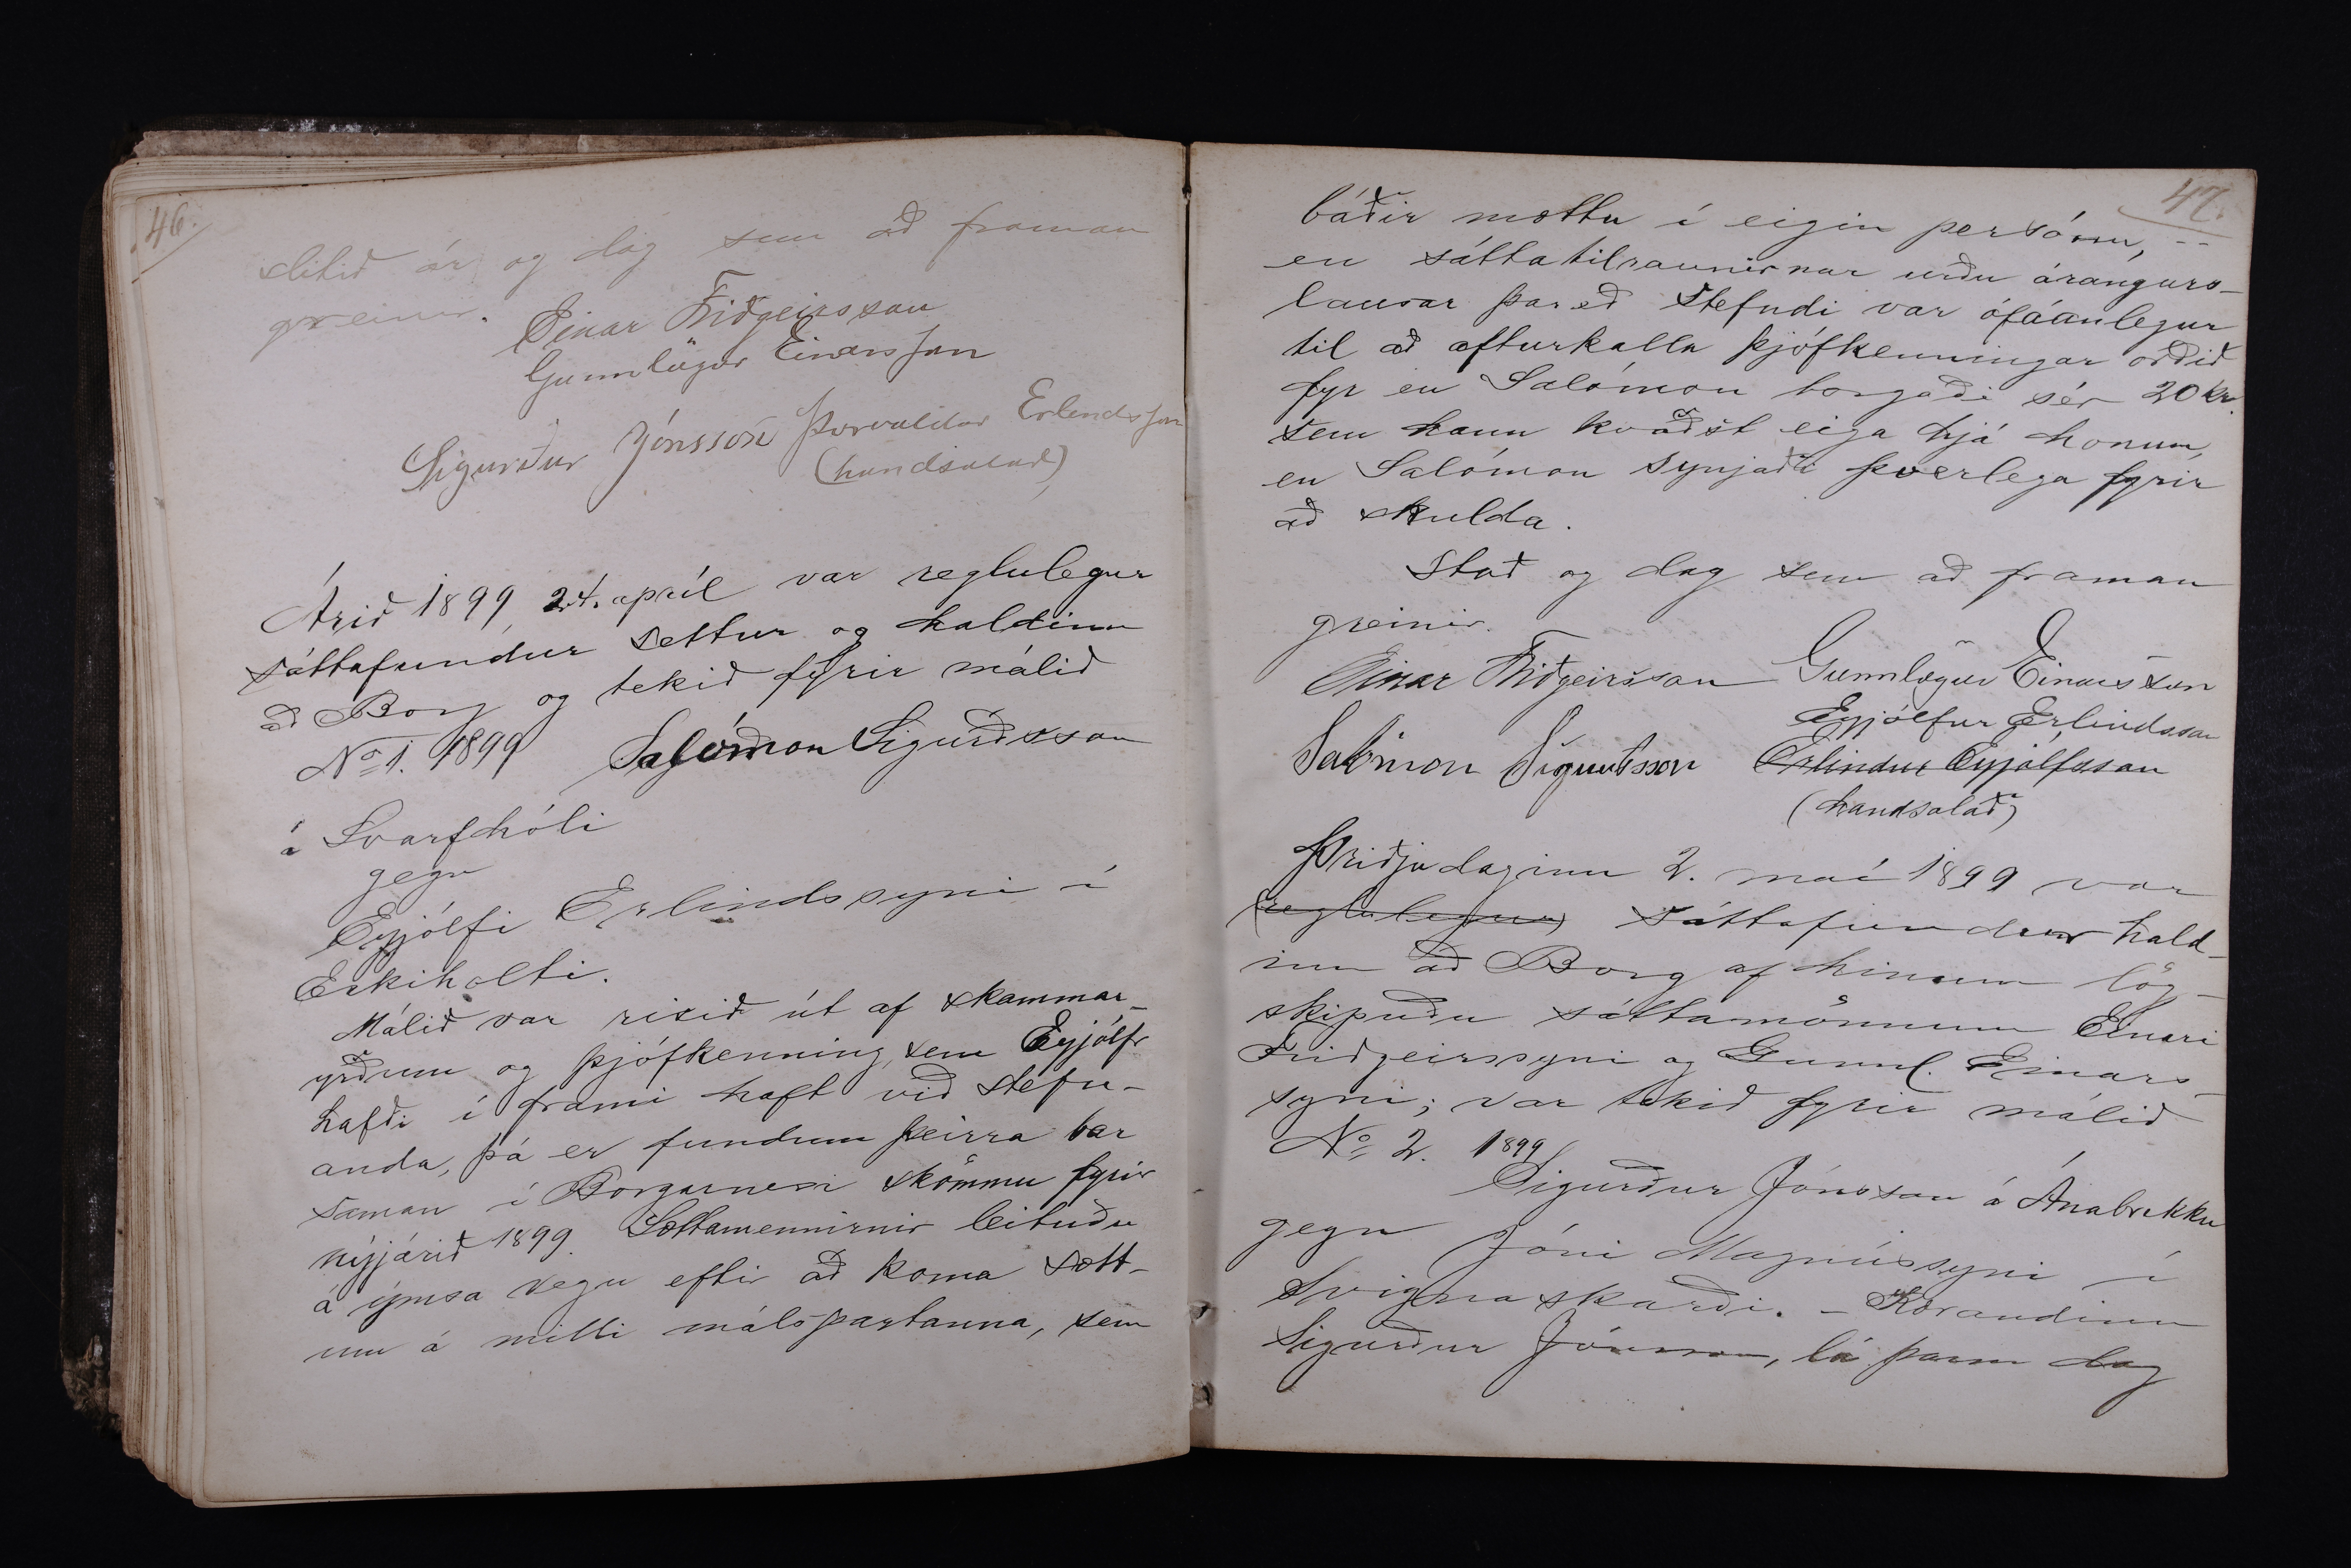 46.
slitið ár og dag sem að framan
greinir.
Einar Friðgeirsson
Gunnlögur Einarsson
Sigurður Jónsson Þorvaldur Erlendsson
(handsalað)
Árið 1899, 24. apríl var reglulegur
sáttafundur settur og haldinn
að Borg og tekið fyrir málið
No 1. 1899 Salómon Sigurðsson
á Svarfhóli
gegn
Eyjólfi Erlindssyni í
Eskiholti.
Málið var risið út af skammar-
yrðum og þjófkenning, sem Eyjólfr
hafði í frami haft við stefn-
anda, þá er fundum þeirra bar
saman í Borgarnesi skömmu fyrir
nýjárið 1899. Sættamennirnir leituðu
á ýmsa vegu eftir að koma sætt-
um á milli málspartanna, sem
47.
báðir mættu í eigin persónu, --
en sáttatilraunirnar urðu árangurs-
lausar þareð stefndi var ófáanlegur
til að afturkalla þjófkenningar orðið
fyr en Salómon borgaði sér 20 kr.
sem hann kvaðst eiga hjá honum,
en Salómon synjaði þverlega fyrir
að skulda.
Stað og dag sem að framan
greinir.
Einar Friðgeirsson Gunnlögur Einarsson
Eyjólfur Erlindsson
Salómon Sigurðsson Erlindur Eyjólfsson
(handsalað)
Þriðjudaginn 2. maí 1899 var
(reglulegur) sáttafundur hald-
inn að Borg af hinum lög-
skipuðu sáttamönnum Einari
Friðgeirssyni og Gunnl. Einars-
syni; var tekið fyrir málið
No 2. 1899
Sigurður Jónsson á Ánabrekku
gegn Jóni Magnússyni í
Svignaskarði. - Kærandinn
Sigurður Jónsson, lá þann dag